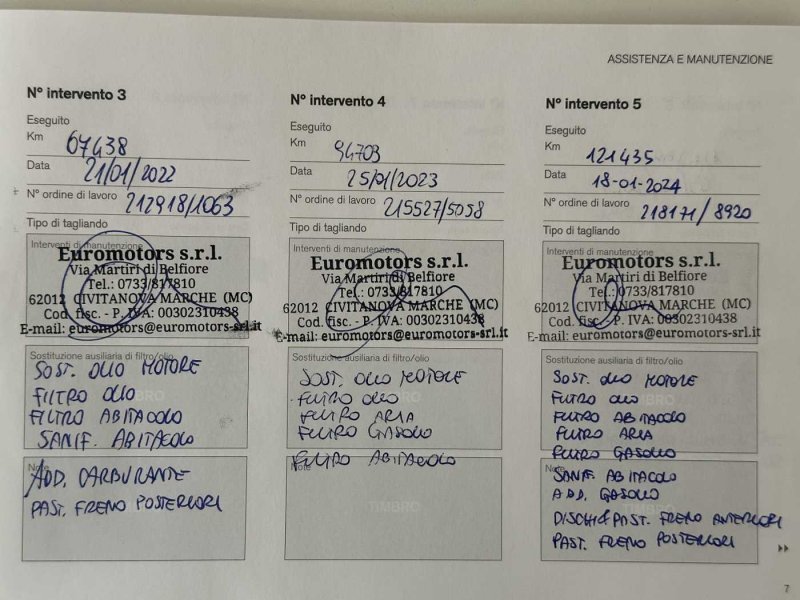 ASSISTENZA E MANUTENZIONE
N° intervento 3
Eseguito
Km 67438
Data 21/01/2022
N° ordine di lavoro 212918/1063
Tipo di tagliando
Interventi di manutenzione
Euromotors s.r.l.
Via Martiri di Belfiore
Tel.: 0733/817810
62012 CIVITANOVA MARCHE (MC)
Cod. fisc. - P. IVA: 00302310438
E-mail: euromotors@euromotors-srl.it
Sostituzione ausiliaria di filtro/olio
SOST. OLIO MOTORE
FILTRO OLIO
FILTRO ABITACOLO
SANIF. ABITACOLO
Note
ADD. CARBURANTE
PAST. FRENO POSTERIORI
N° intervento 4
Eseguito
Km 94703
Data 25/01/2023
N° ordine di lavoro 215527/5058
Tipo di tagliando
Interventi di manutenzione
Euromotors s.r.l.
Via Martiri di Belfiore
Tel.: 0733/817810
62012 CIVITANOVA MARCHE (MC)
Cod. fisc. - P. IVA: 00302310438
E-mail: euromotors@euromotors-srl.it
Sostituzione ausiliaria di filtro/olio
SOST. OLIO MOTORE
FILTRO OLIO
FILTRO ARIA
FILTRO GASOLIO
FILTRO ABITACOLO
Note
TIMBRO
N° intervento 5
Eseguito
Km 121435
Data 18-01-2024
N° ordine di lavoro 218171/8920
Tipo di tagliando
Interventi di manutenzione
Euromotors s.r.l.
Via Martiri di Belfiore
Tel.: 0733/817810
62012 CIVITANOVA MARCHE (MC)
Cod. fisc. - P. IVA: 00302310438
E-mail: euromotors@euromotors-srl.it
Sostituzione ausiliaria di filtro/olio
SOST. OLIO MOTORE
FILTRO OLIO
FILTRO ABITACOLO
FILTRO ARIA
FILTRO GASOLIO
Note
SANIF. ABITACOLO
ADD. GASOLIO
DISCHI & PAST. FRENO ANTERIORI
PAST. FRENO POSTERIORI
7